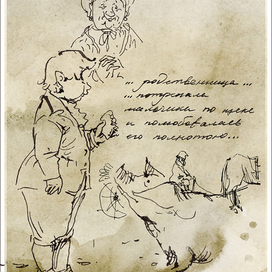 ... родственница ...
... потрепала
мальчика по щеке
и полюбовалась
его полнотою...